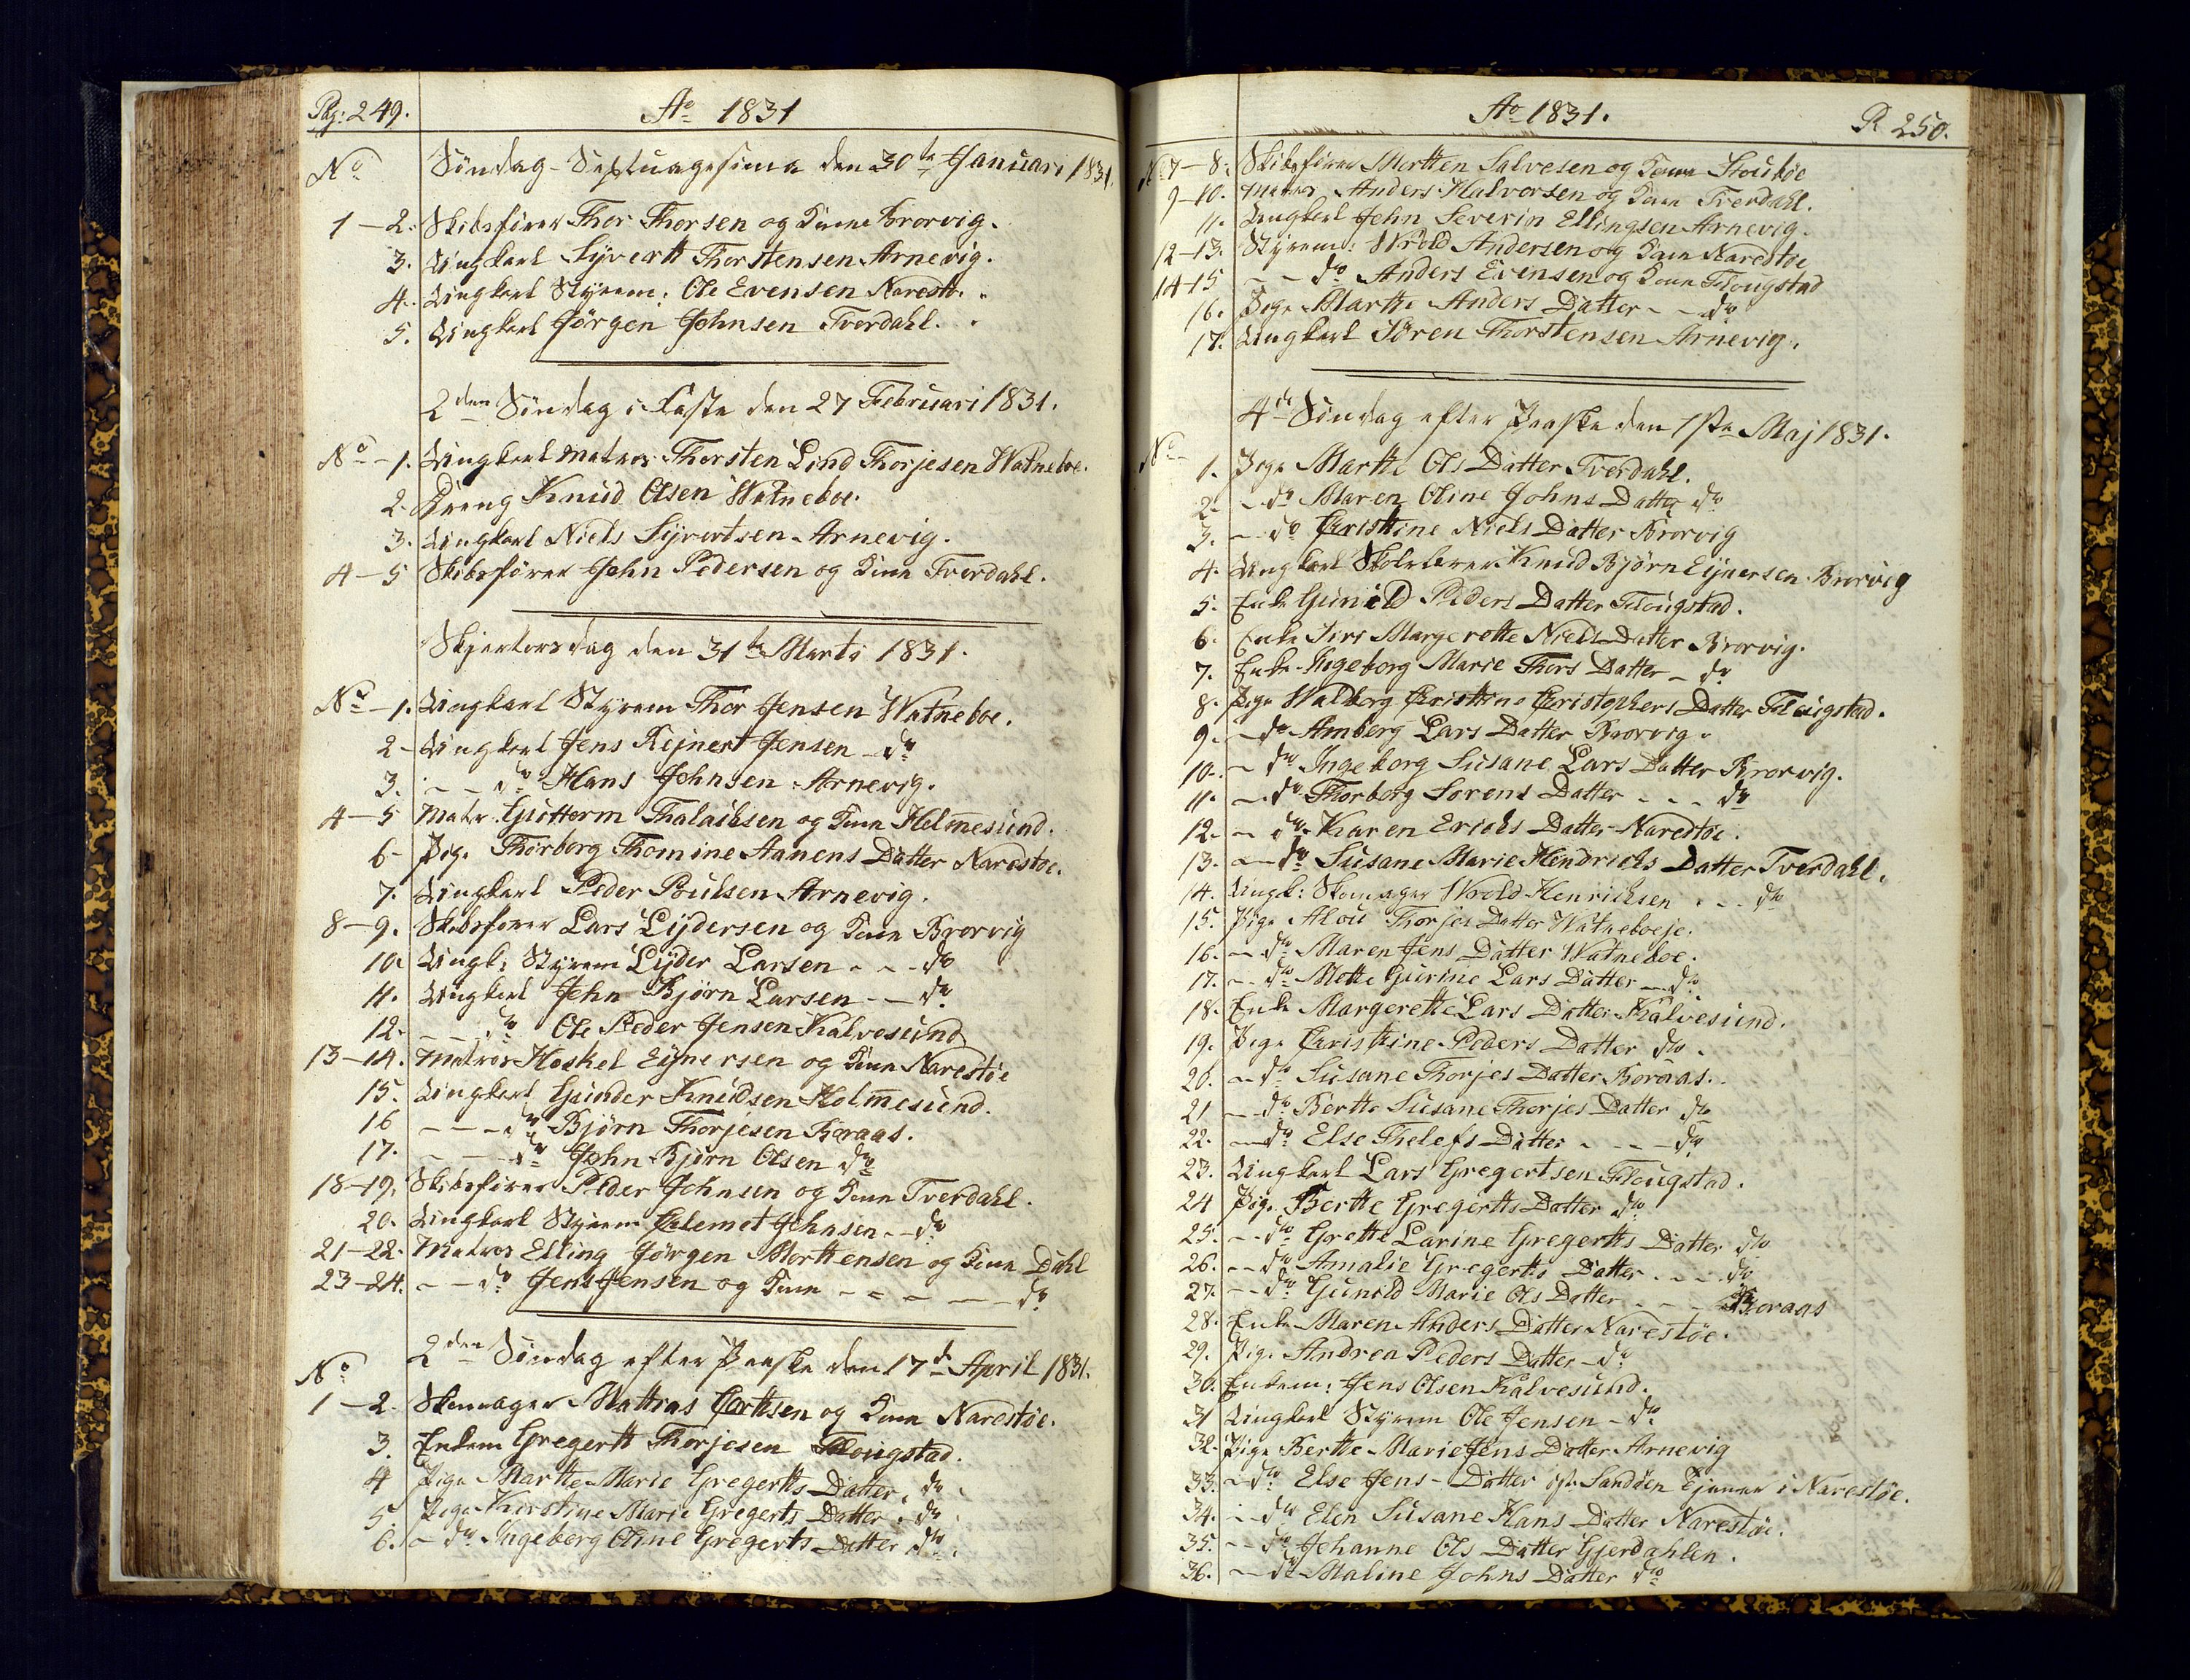 Pag: 249.
Ao 1831
No Söndag Septuagesima den 30te Januari 1831.
1-2. Skibsförer Thor Thorsen og Kone Brorvig.
3. Ungkarl Syvertt Thorstensen Arnevig.
4. Ungkarl Styrem: Ole Evensen Narestö.
5. Ungkarl Jörgen Johnsen Tverdahl.
2den Söndag i Faste den 27 Februari 1831.
No 1. Ungkarl Matros Thorsten Lind Thorjesen Watneboe.
2. Dreng Knud Olsen Watneboe.
3. Ungkarl Niels Syvertsen Arnevig.
4-5 Skibsförer John Pedersen og Kone Tverdahl.
Skjertorsdag den 31te Marts 1831.
No 1. Ungkarl Styrem Thor Jensen Watneboe.
2 - Ungkarl Jens Rejnert Jensen - do
3. - - do Hans Johnsen Arnevig.
4-5 Matr. Guttorm Thalachsen og Kone Holmesund.
6 - Pige Thorborg Thomine Aanens Datter Narestöe.
7. Ungkarl Peder Poulsen Arnevig.
8-9. Skibsförer Lars Lydersen og Kone Brorvig
10. Ungk: Styrem Lyder Larsen - - do
11. Ungkarl John Björn Larsen - - do
12. - - do Ole Peder Jensen Kalvesund
13-14. Matros Hoskel Eynersen og Kone Narestöe
15. Ungkarl Gunder Knudsen Holmesund.
16 - - - do Björn Thorjesen Boraas.
17. - - - do John Björn Olsen do
18-19. Skibsförer Peder Johnsen og Kone Tverdahl.
20. Ungkarl Styrem Clemet Johnsen - do
21-22. Matros Elling Jörgen Morttensen og Kone Dahl
23-24. - - do Jens Jensen og Kone - - - - do
No 2den Söndag efter Paaske den 17de April 1831.
1-2. Skomager Mattias Corttsen og Kone Narestöe.
3. Enkem Gregertt Thorjesen Flougstad.
4 Pige Martte Marie Gregertts Datter, do
5. Pige Kirstine Marie Gregerts Datter. do
6. - do Ingeborg Oline Gregerts Datter do
Ao 1831. P. 250.
No 7-8. Skibsförer Mortten Salvesen og Kone Stouböe
9-10. Matros Anders Halvorsen og Kone Tverdahl.
11. Ungkarl John Severin Ellingsen Arnevig.
12-13. Styrem: Wrold Andersen og Kone Narestöe
14-15 - - do Anders Evensen og Kone Flougstad
16. Pige Martte Anders Datter - - do
17. Ungkarl Sören Thorstensen Arnevig.
4de Söndag efter Paaske den 1ste Maj 1831.
No 1. Pige Martte Ols Datter Tverdahl.
2. - do Maren Oline Johns Datter do
3. - do Christine Niels Datter Brorvig
4. Ungkarl Skolelærer Knud Björn Eynersen Brorvig
5. Enke Gunild Peders Datter Flougstad.
6. Enke Sirs Margerette Niels Datter Brorvig.
7. Enke Ingeborg Marie Thors Datter - do
8. Pige Walborg Christine Christophers Datter Flougstad.
9. - do Amberg Lars Datter Brorvig.
10. - do Ingeborg Susane Lars Datter Brorvig.
11. - do Thorborg Sorens Datter - - - do
12. - do Karen Erichs Datter Narestöe.
13. - do Susane Marie Hendrichs Datter Tverdahl.
14. Ungk: Skomager Wrold Henrichsen - - do
15. Pige Alous Thorjes Datter Watneboeje.
16. - do Maren Jens Datter Watneboe.
17. - do Mette Gurine Lars Datter - do
18. Enke Margerette Lars Datter Kalvesund.
19. Pige Christine Peders Datter do.
20. - do Susane Thorjes Datter Boraas.
21 - do Bertte Susane Thorjes Datter do
22. - do Else Thelefs Datter - - - do
23. Ungkarl Lars Gregertsen Flougstad.
24 Pige Bertte Gregertts Datter do
25. - do Grette Larine Gregertts Datter do
26. - do Amalie Gregertts Datter - - - do
27. - do Gunild Marie Ols Datter - - - Boraas
28. Enke Maren Anders Datter Narestöe.
29. Pige Andrea Peders Datter - do
30. Enkem: Jens Olsen Kalvesund.
31 Ungkarl Styrem Ole Jensen - do
32. Pige Bertte Marie Jens Datter Arnevig
33. - do Else Jens - Datter Sandöen tjener i Narestöe.
34. - do Elen Susane Hans Datter Narestöe.
35. - do Johanne Ols Datter Gjerdahlen.
36. - do Maline Johns Datter do